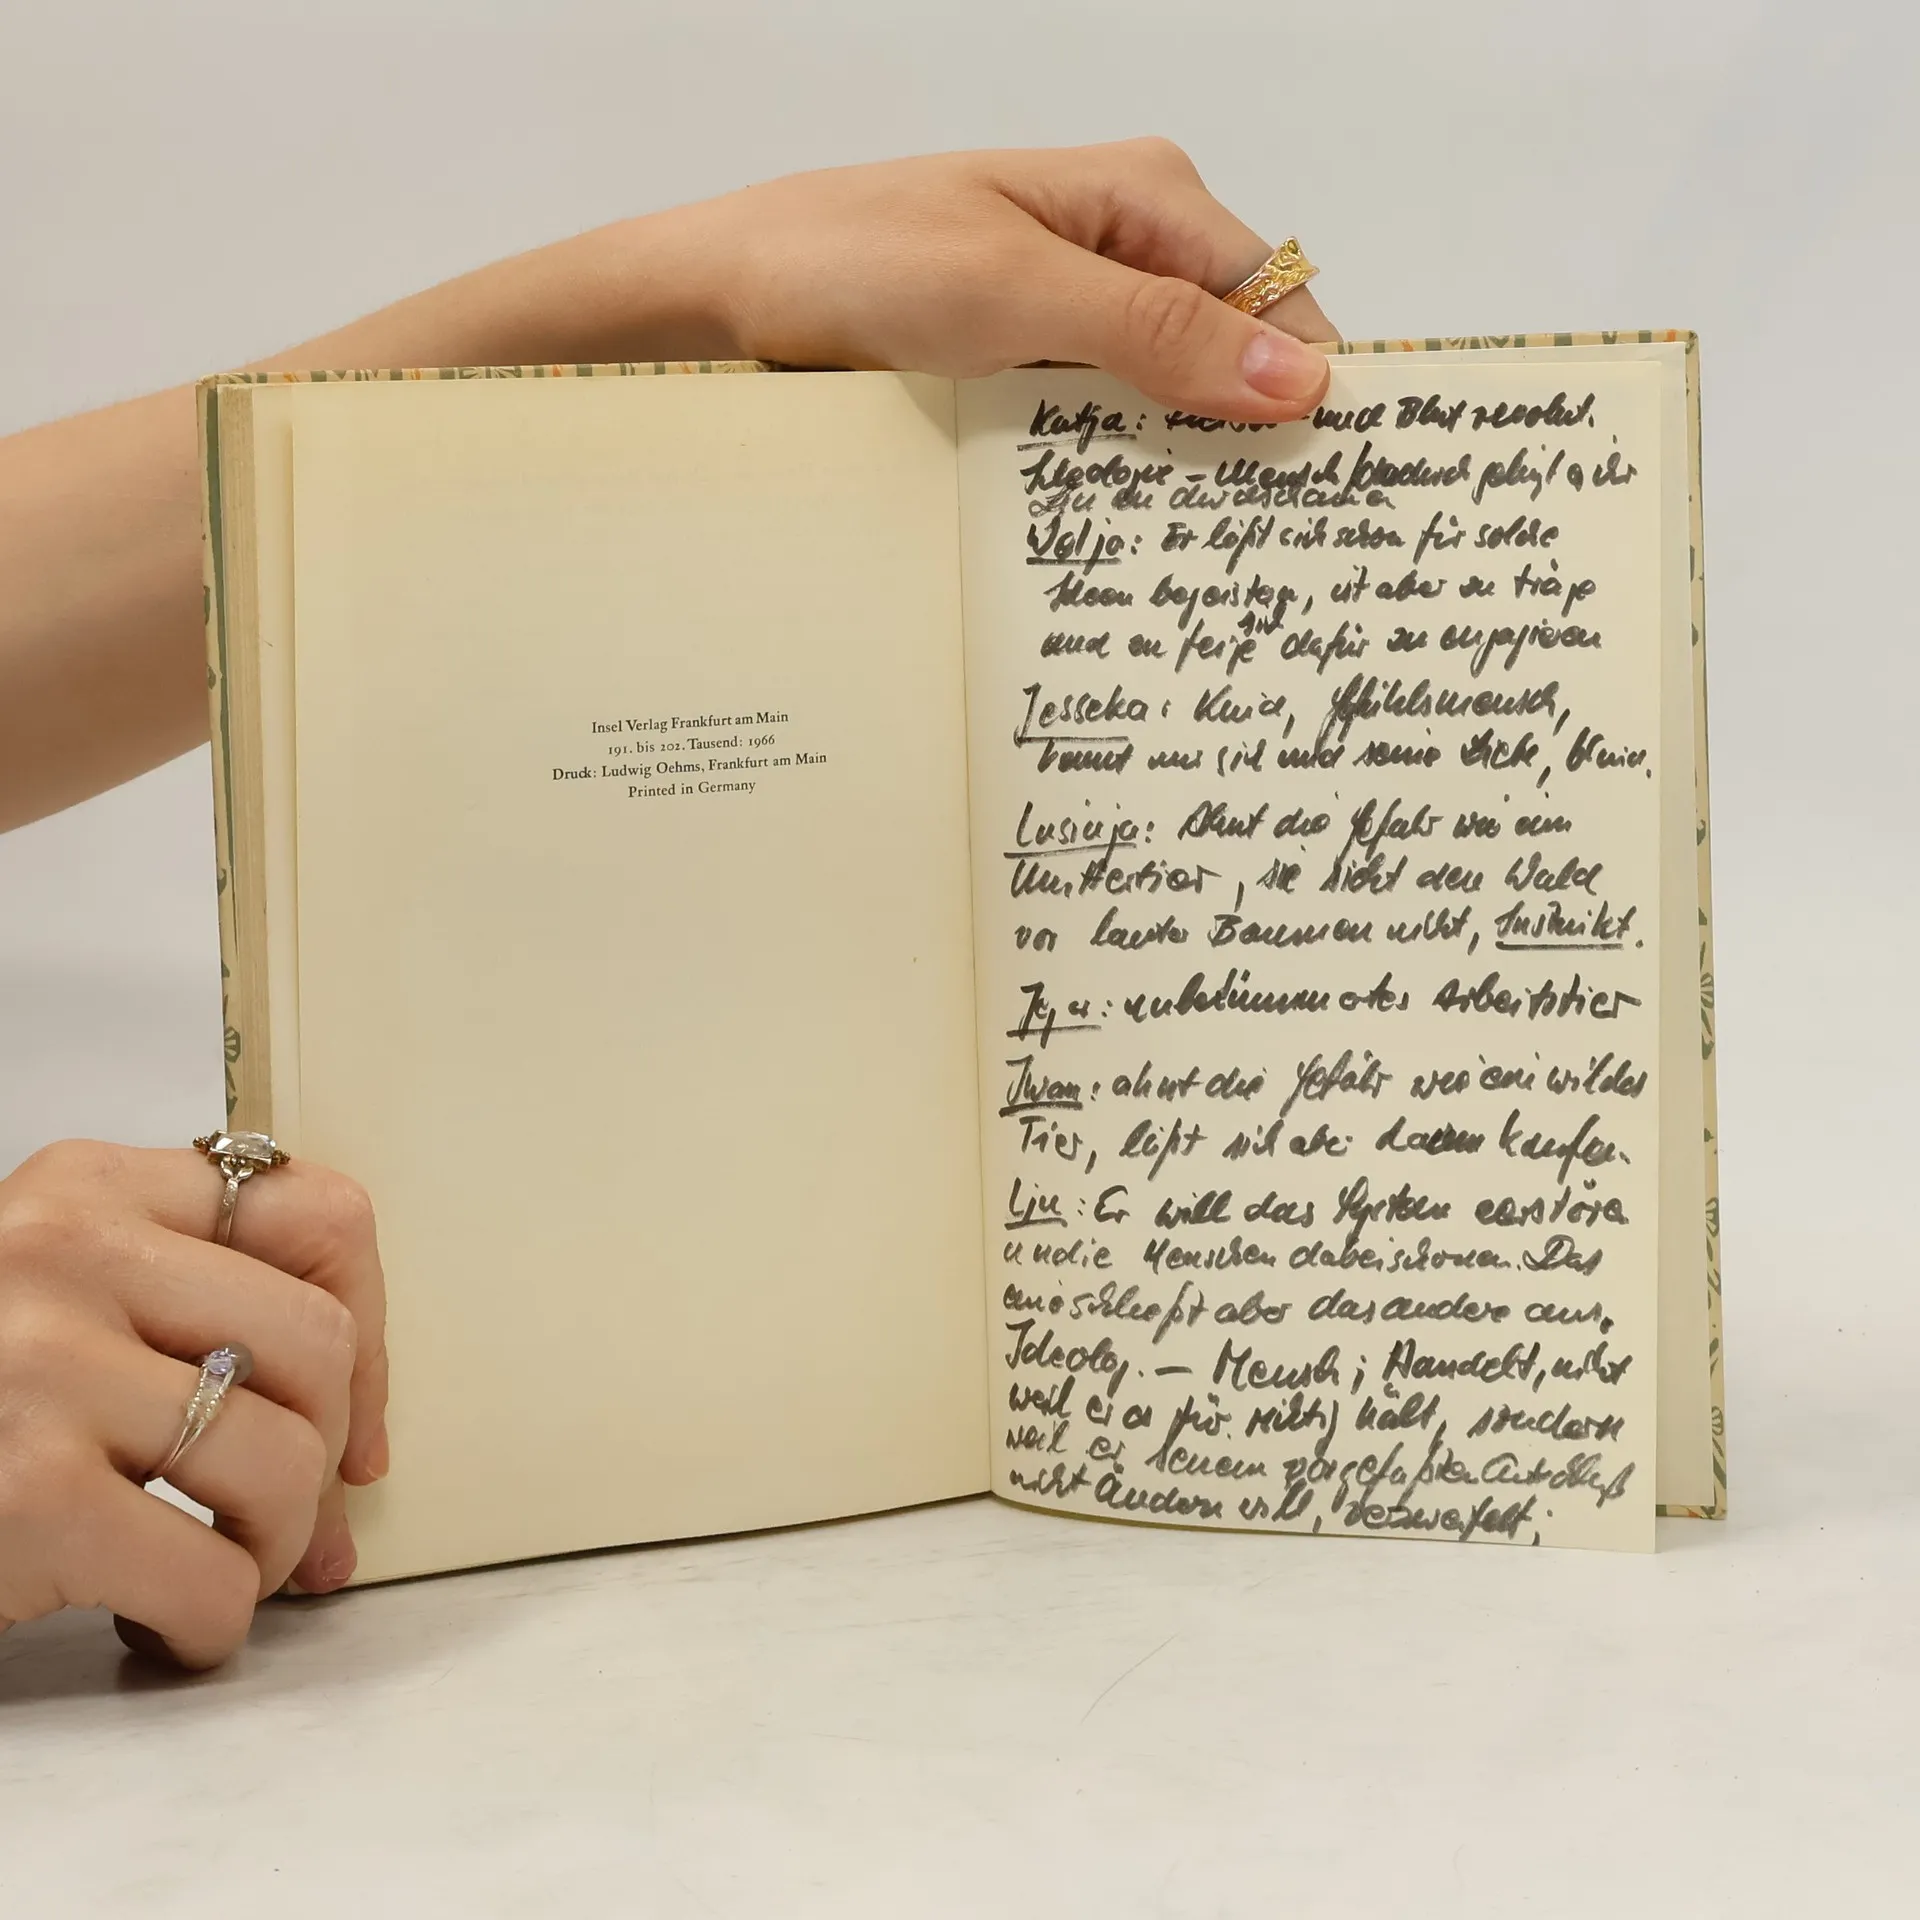 Insel Verlag Frankfurt am Main
191. bis 202. Tausend: 1966
Druck: Ludwig Oehms, Frankfurt am Main
Printed in Germany
Katja: und Blut revolut.
Ideologie – Mensch / dadurch gelingt es ihr
Lju zu durchschauen
Wolja: Er läßt sich schon für solche
Ideen begeistern, ist aber zu träge
und zu feige sich dafür zu engagieren
Jesseka: Kind, Gefühlsmensch,
kennt nur sich und seine Liebe,
Lusinja: Ahnt die Gefahr wie ein
Muttertier, sie sieht den Wald
vor lauter Bäumen nicht, Instinkt.
Jegor: unbekümmertes Arbeitstier
Iwan: ahnt die Gefahr wie ein wildes
Tier, läßt sich aber dann kaufen.
Lju: Er will das System zerstören
und die Menschen dabei schonen. Das
eine schließt aber das andere aus.
Ideolog. – Mensch; Handelt, nicht
weil er es für richtig hält, sondern
weil er seinen vorgefaßten Entschluß
nicht Ändern will, verzweifelt;